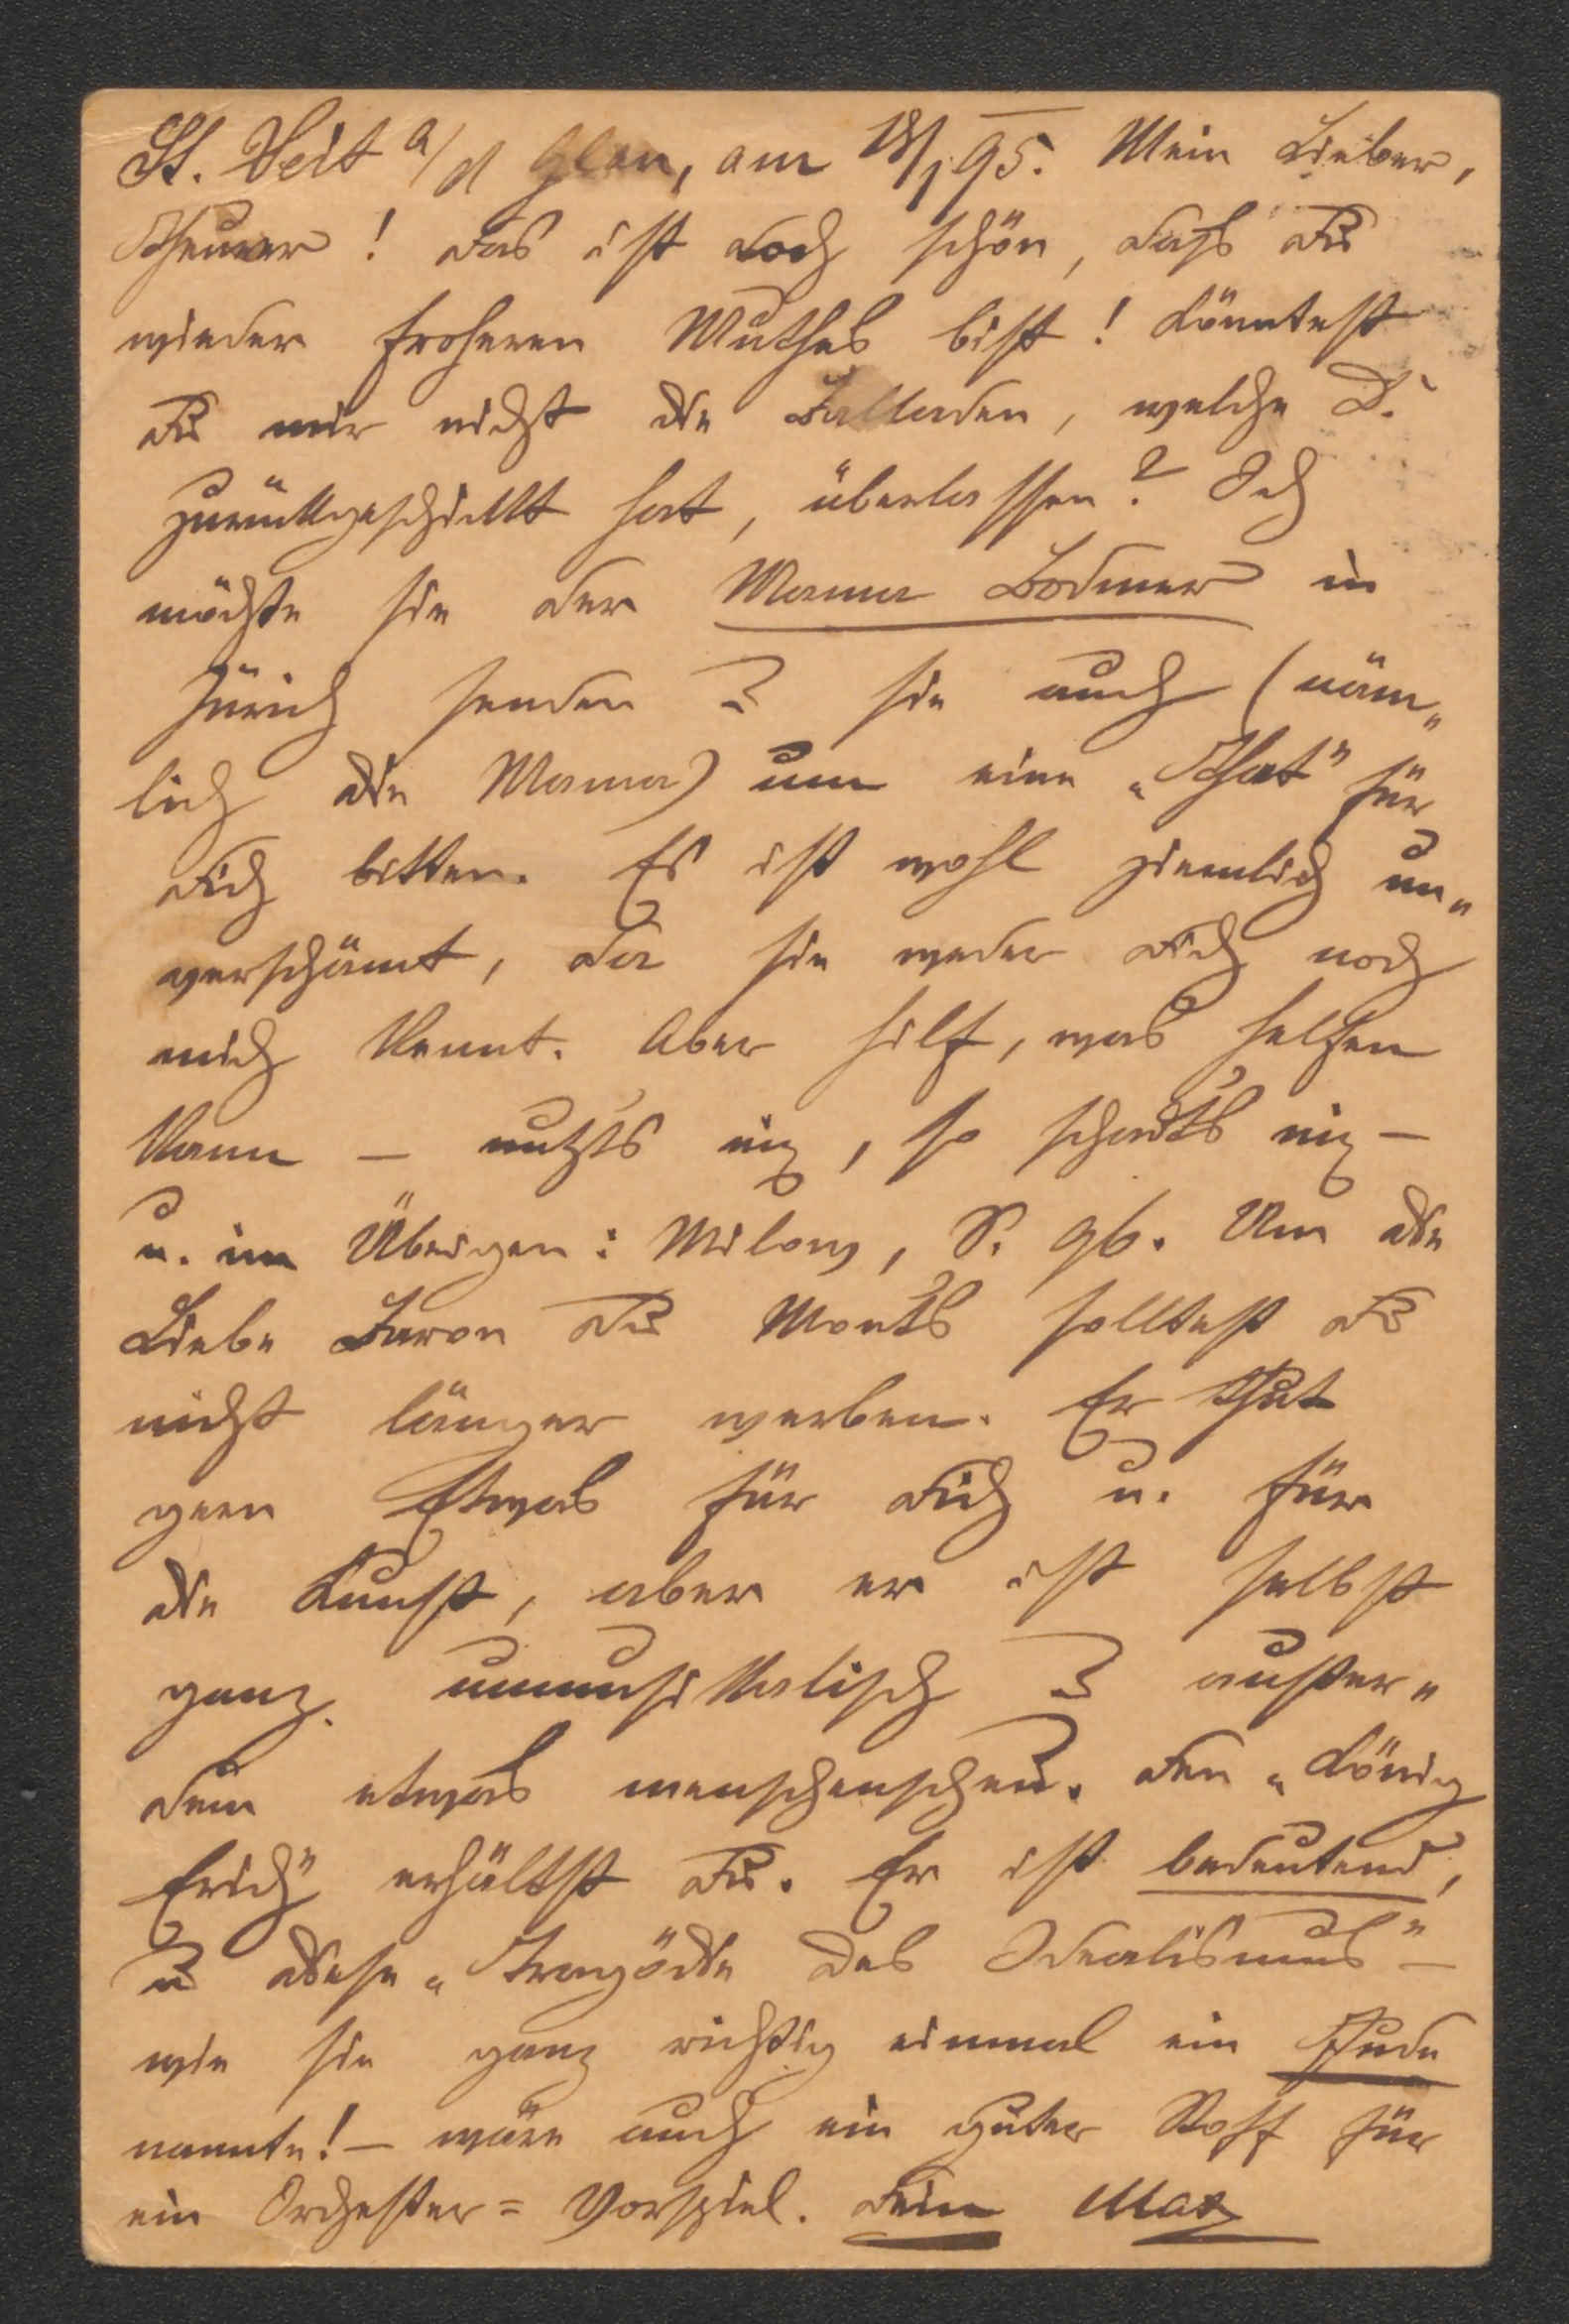 St. Veit a/d Glan, am 18/1. 95. Mein Lieber,
Theurer! Das ist doch schön, daß Du
wieder froheren Muthes bist! Könntest
Du mir nicht die Balladen, welche D.
zurückgeschickt hat, überlassen? Ich
möchte sie der Mama Bodmer in
Zürich senden u sie auch (näm„
lich die Mama) um eine „That" für
Dich bitten. Es ist wohl ziemlich un„
verschämt, da sie weder Dich noch
mich kennt. Aber hilf, was helfen
kann – nutzt's nix, so schadt's nix –
u. im Übrigen: Milow, S. 96. Um die
Liebe Baron Du Mont's solltest Du
nicht länger werben. Er thut
gern Etwas für Dich u. für
die Kunst, aber er ist selbst
ganz unmusikalisch u außer„
dem etwas menschenscheu. Den „König
Erich" erhältst Du. Er ist bedeutend,
u diese „Tragödie des Idealismus" –
wie sie ganz richtig einmal ein Jude
nannte! – wäre auch ein guter Stoff für
ein Orchester= Vorspiel. Dein Max